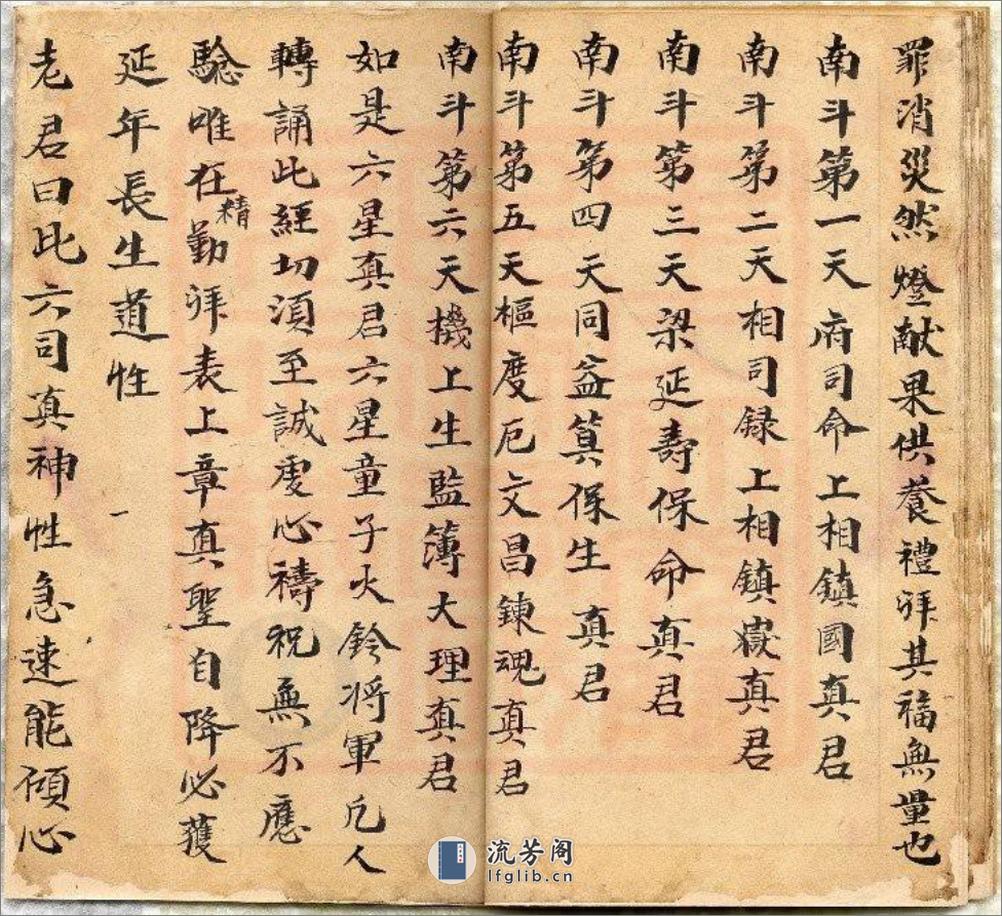 罪消災然燈献果供養禮拜其福無量也
南斗第一天府司命上相鎮國真君
南斗第二天相司録上相鎮嶽真君
南斗第三天梁延壽保命真君
南斗第四天同益筭保生真君
南斗第五天樞度厄文昌鍊魂真君
南斗第六天機上生監簿大理真君
如是六星真君六星童子火鈴将軍凢人
轉誦此經切須至誠虔心禱祝無不應
驗唯在精勤拜表上章真聖自降必獲
延年長生道性
老君曰此六司真神性急速能傾心
流芳阁
lfglib.cn